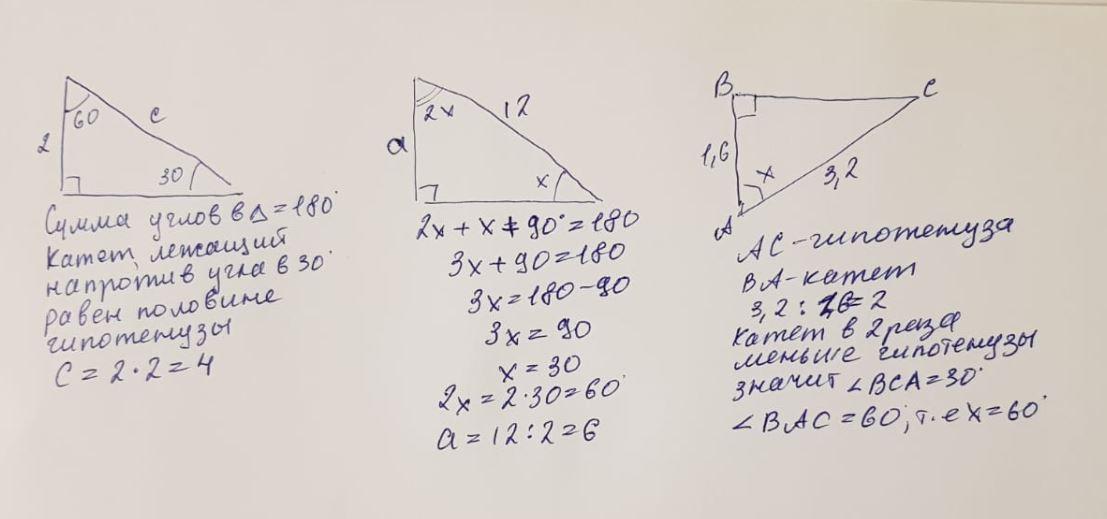 60
c
2
30
Сумма углов в Δ=180°
Катет, лежащий
напротив угла в 30°
равен половине
гипотенузы
C = 2·2=4
2x
12
a
x
2x + x + 90°=180
3x+90=180
3x=180-90
3x=90
x=30
2x=2·30=60°
a=12:2=6
B
C
1,6
x
3,2
A
AC-гипотенуза
BA-катет
3,2 : 1,6=2
Катет в 2 раза
меньше гипотенузы
значит ∠BCA=30°
∠BAC=60; т.е x=60°